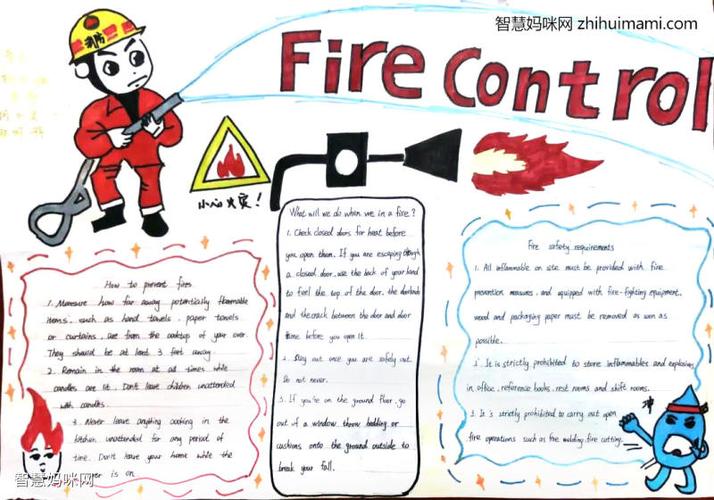 智慧妈咪网 zhihuimami.com
Fire Control
消防
小心火灾!
How to prevent fires
1. Measure how far away potentially flammable
items, such as hand towels, paper towels
or curtains, are from the cooktop of your oven.
They should be at least 3 feet away.
2. Remain in the room at all times while
candles are lit. Don't leave children unattended
with candles.
3. Never leave anything cooking in the
kitchen unattended for any period of
time. Don't leave your home while the
is on.
What will we do when we in a fire?
1. Check closed doors for heat before
you open them. If you are escaping through
a closed door, use the back of your hand
to feel the top of the door, the doorknob
and the crack between the door and door
frame before you open it.
2. Stay out once you are safely out.
Do not never.
3. If you're on the ground floor, go
out of a window, throw bedding or
cushions onto the ground outside to
break your fall.
Fire safety requirements
1. All inflammable on site must be provided with fire
prevention measures, and equipped with fire-fighting equipment,
wood and packaging paper must be removed as soon as
possible.
2. It is strictly prohibited to store inflammables and explosives
in office, reference books, rest rooms and shift rooms.
3. It's strictly prohibited to carry out open
fire operations such as fire welding, fire cutting.
智慧妈咪网